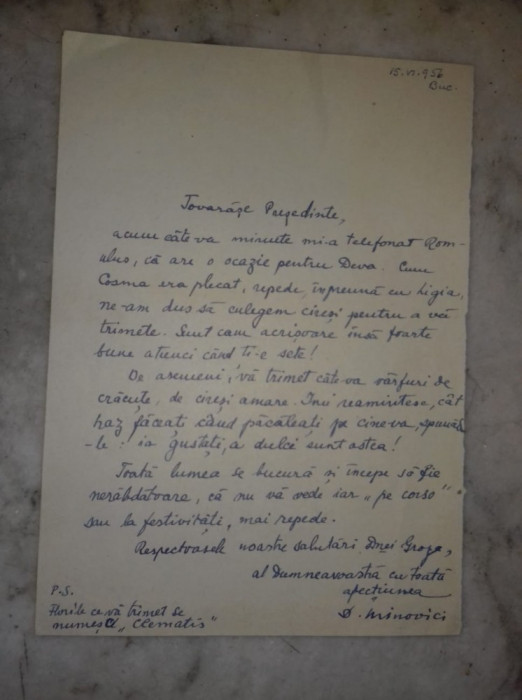 15.VI.956
Buc.
Tovarășe Președinte,
acum câte-va minute mi-a telefonat Rom-
ulus, că are o ocazie pentru Deva. Cum
Cosma era plecat, repede, împreună cu Ligia,
ne-am dus să culegem cireși pentru a vă
trimete. Sunt cam acrișoare însă foarte
bune atunci când ți-e sete!
De asemeni, vă trimet câte-va vârfuri de
crăcuțe, de cireși amare. Îmi reamintesc, cât
haz făceați când păcăleați pe cine-va, spunâd
-le: ia gustați, a dulci sunt astea!
Toată lumea se bucură și începe să fie
nerăbdătoare, că nu vă vede iar „pe corso"
sau la festivități, mai repede.
Respectoasele noastre salutări Dnei Groza,
al Dumneavoastră cu toată
afecțiunea
D. Minovici
P.S.
Florile ce vă trimet se
numesc „Clematis"